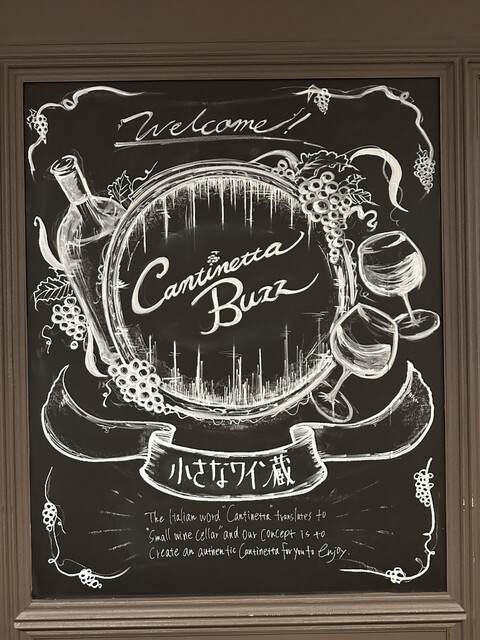 Welcome!
Cantinetta
Buzz
小さなワイン蔵
The Italian word "Cantinetta" translates to
"Small wine cellar" and our concept is to
Create an authentic Cantinetta for you to enjoy.